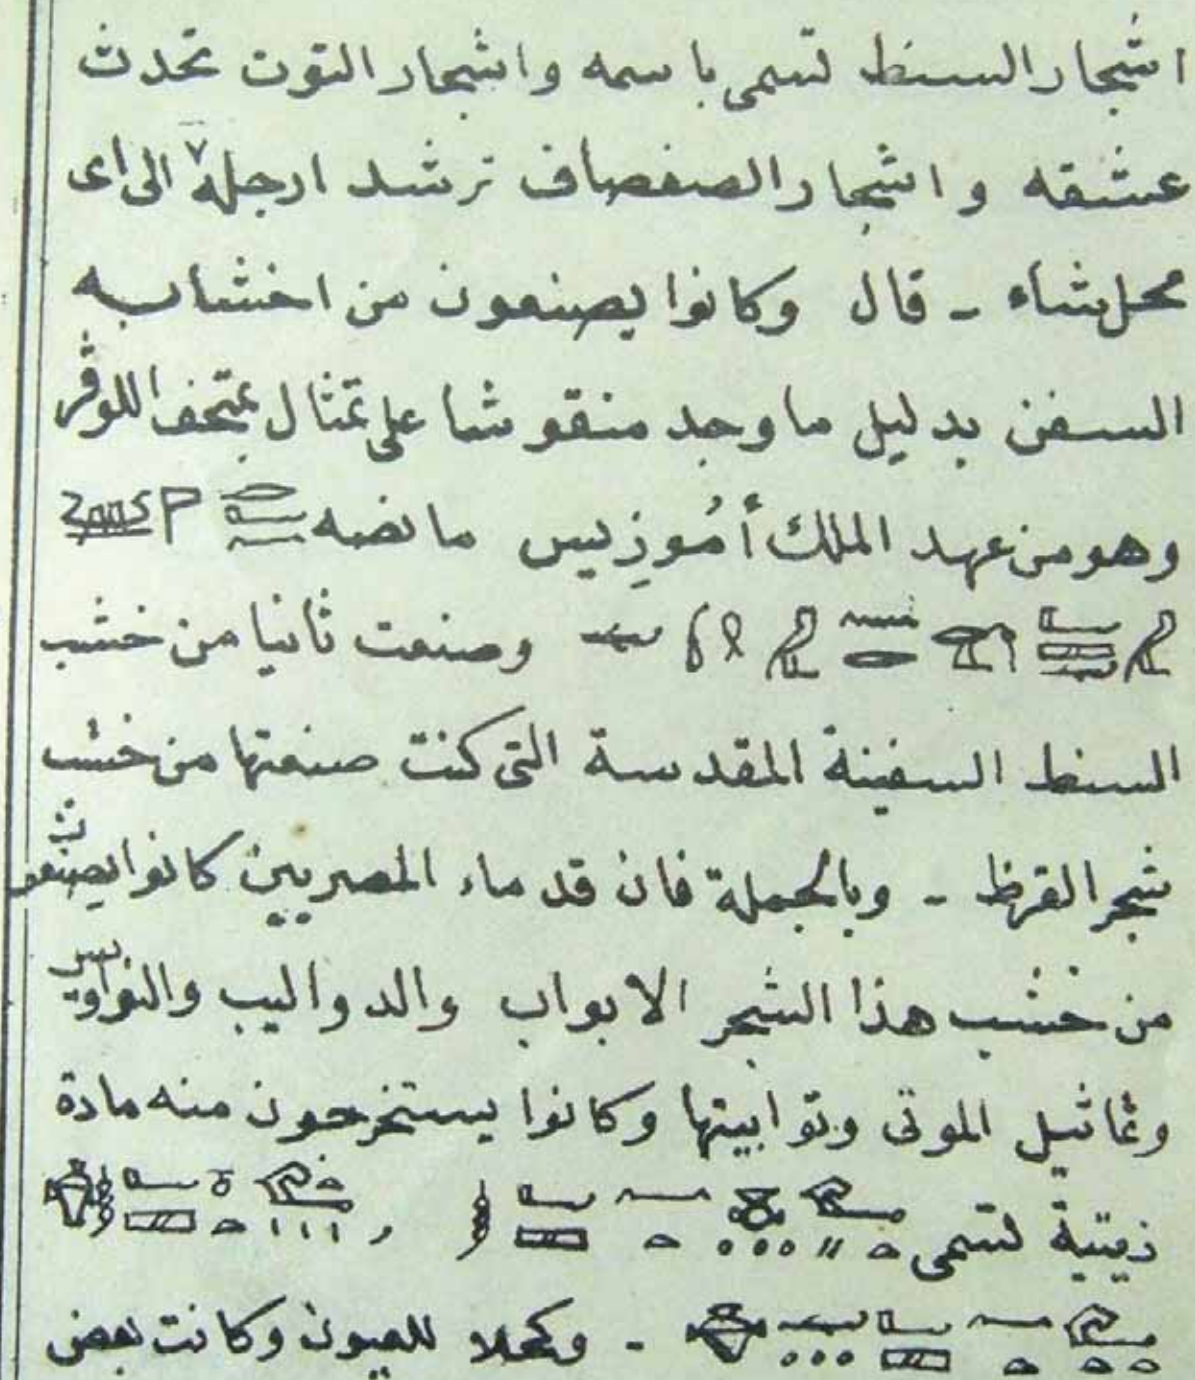 اشجار السنط تسمى باسمه واشجار التوت تحدث
عشقه واشجار الصفصاف ترشد ارجله الى اى
محل شاء - قال وكانوا يصنعون من اخشابه
السفن بدليل ما وجد منقوشا على تمثال بمتحف اللوڤر
وهو من عهد الملك أمُوزِيس ما نصه
وصنعت ثانيا من خشب
السنط السفينة المقدسة التى كنت صنعتها من خشب
شجر القرظ - وبالجملة فان قدماء المصريين كانوا يصنعون
من خشب هذا الشجر الابواب والدواليب والنواويس
وتماثيل الموتى وتوابيتها وكانوا يستخرجون منه مادة
زيتية تسمى
- وكحلا للعيون وكانت بعض